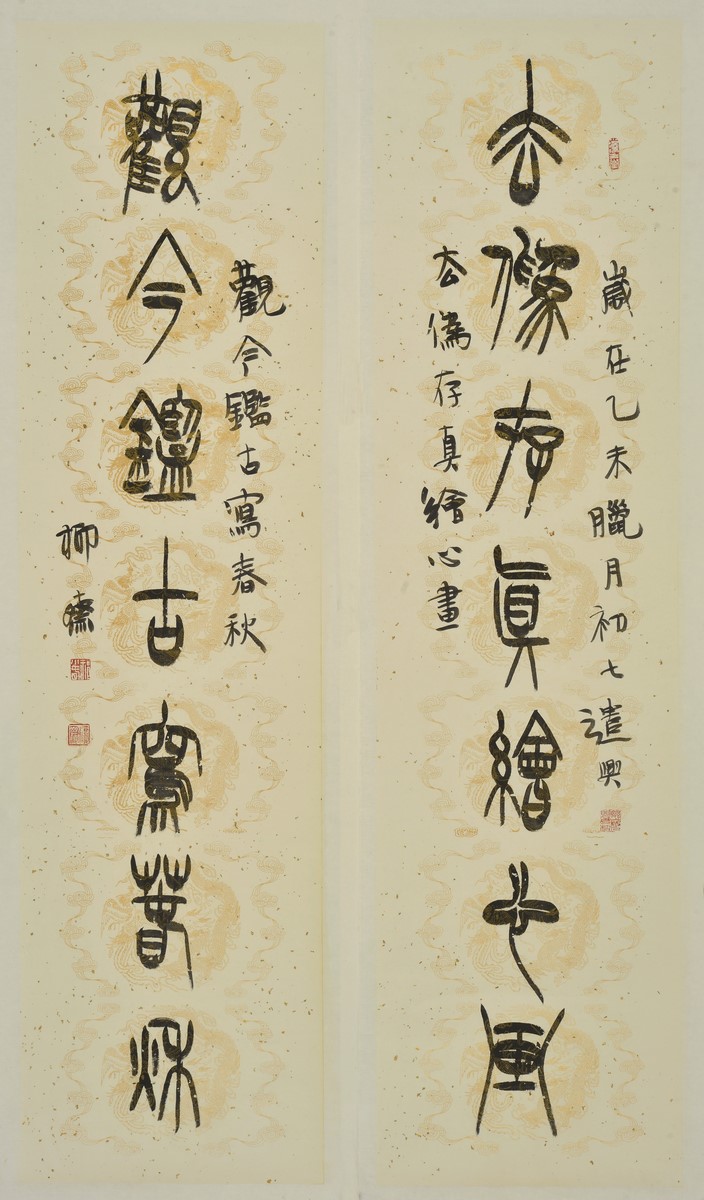 歲在乙未臘月初七遣興
去偽存真繪心畫
去偽存真繪心畫
觀今鑑古寫春秋
觀今鑑古寫春秋
柳